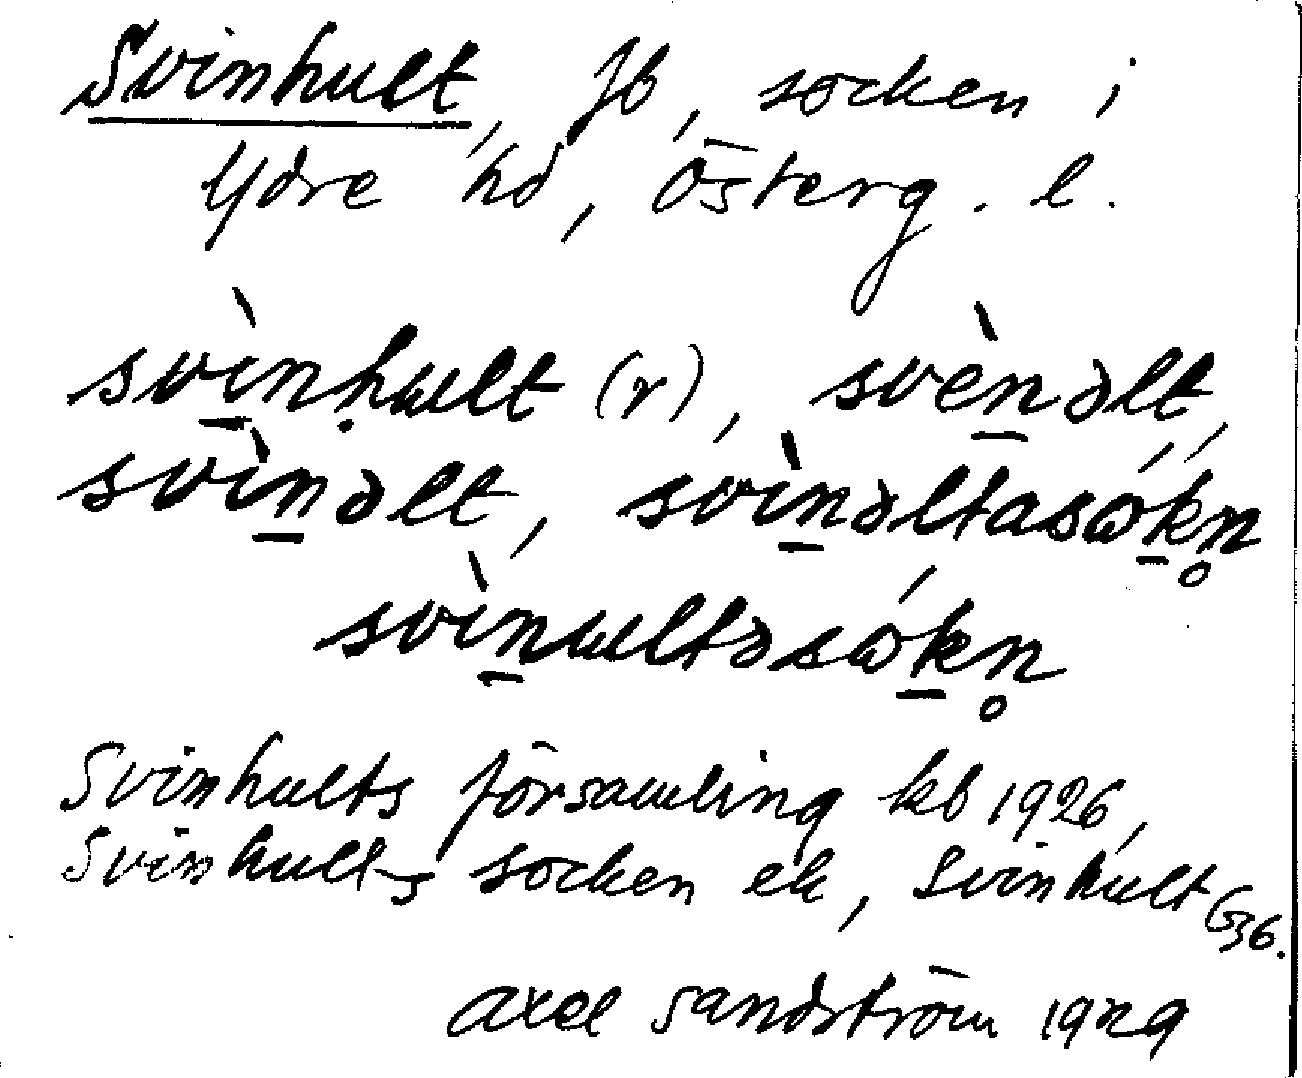 Svinhult, Jb, socken i
Ydre hd, Österg. l.
svìn̠ḥult (r), svèn̠əlt,
svìn̠əlt, svìn̠əltasǿk̠n̥
svìn̠ultəsǿk̠n̥
Svinhults församling kb 1926,
Svinhults socken ek, Svinhult G36.
Axel Sandström 1929